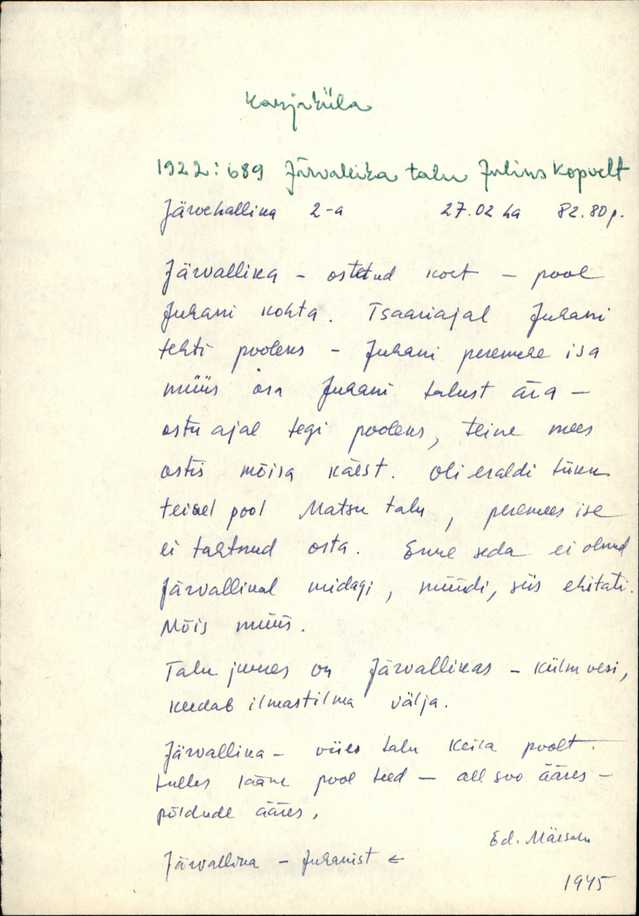 Karjaküla
1922: 689 Järvaleika talu Julius Kopvelt
Järvehallika 2-a 27.02 ha 82.80 p.
Järvallika – ostetud koet – pool
Juhani kohta. Tsaariajal Juhani
tehti pooleks – Juhani peremehe isa
müüs osa Juhani talust ära –
ostu ajal tegi pooleks, teine mees
ostis mõisa käest. Oli eraldi tükk
teisel pool Matsu talu, peremees ise
ei tahtnud osta. Enne seda ei olnud
Järvallikal midagi, müüdi, siis ehitati.
Mõis müüs.
Talu juures on Järvallikas – külm vesi,
keedab ilmastilma välja.
Järvallika – viies talu Keila poolt
tulles lääne pool teed – all soo ääres –
põldude ääres.
Järvallika – Juhanist ←
Ed.
1945